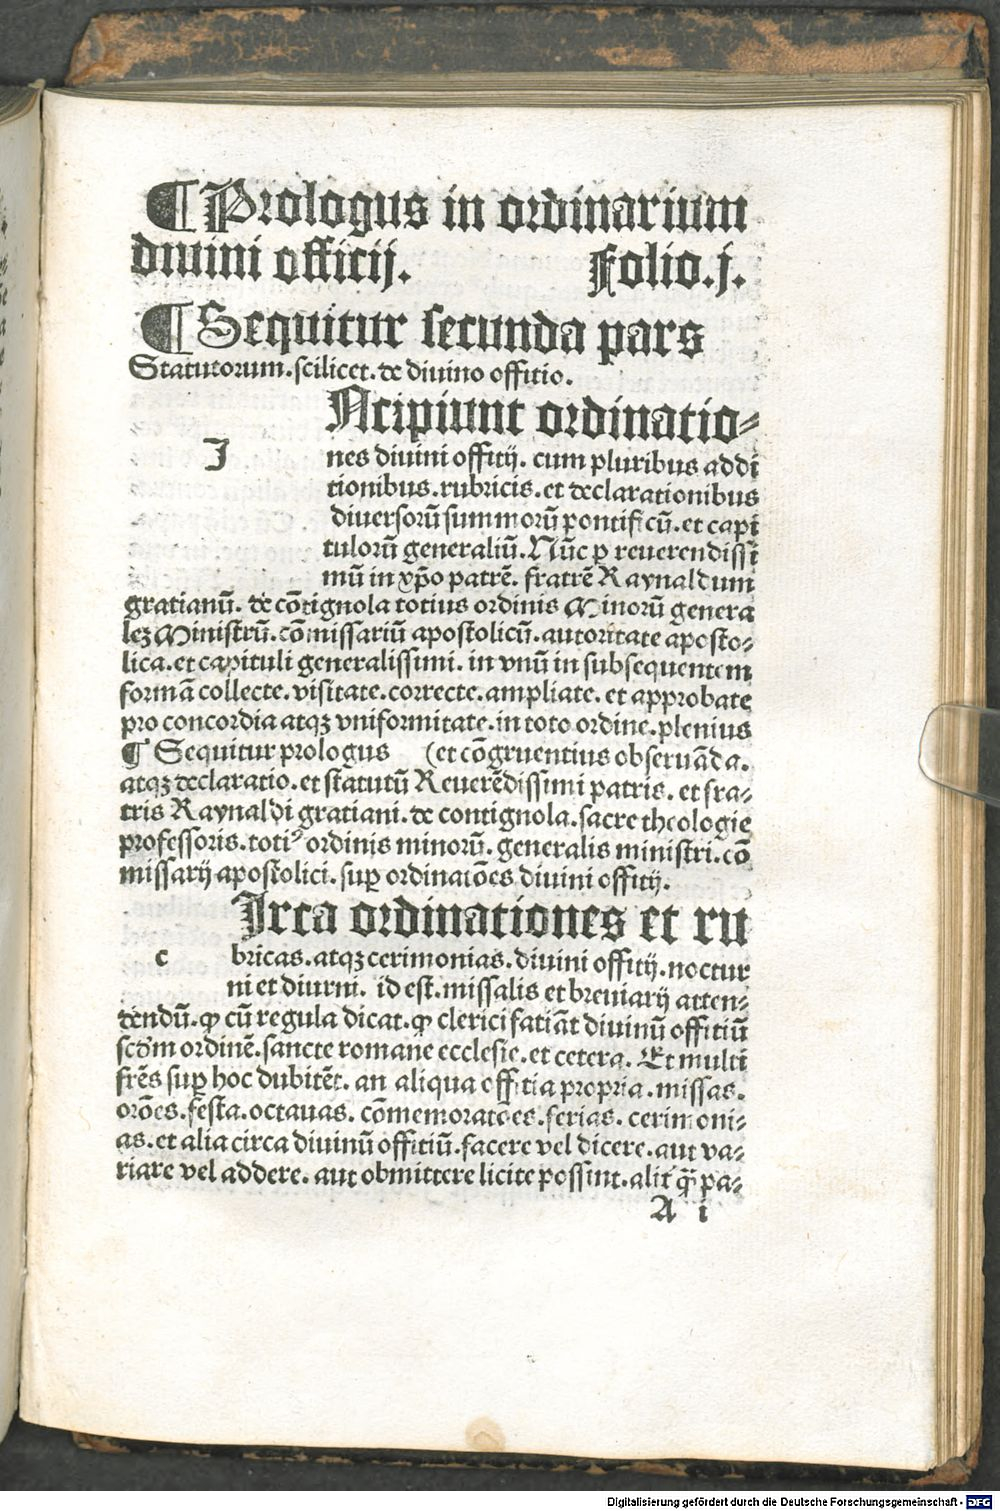 ¶ Prologus in ordinarium
diuini officij. Folio.j.
¶ Sequitur secunda pars
Statutorum.scilicet.de diuino offitio.
Ncipiunt ordinatio⸗
I nes diuini offitij. cum pluribus addi
tionibus.rubricis.et declarationibus
diuersorū summorū pontificū.et capi
tulorū generaliū.Nūc ꝑ reuerendissi
mū in xp̄o patrē. fratrē Raynaldum
gratianū. de cōtignola totius ordinis Minorū genera
leꝫ Ministrū.cōmissariū apostolicū.autoritate aposto⸗
lica.et capituli generalissimi.in vnū in subsequentem
formā collecte.visitate.correcte.ampliate.et approbate
pro concordia atqꝫ vniformitate.in toto ordine.plenius
¶ Sequitur prologus (et cōgruentius obseruāda.
atqꝫ declaratio.et statutū Reuerēdissimi patris.et fra⸗
tris Raynaldi gratiani.de contignola.sacre theologie
professoris.totiꝰ ordinis minorū.generalis ministri.cō
missarij apostolici.suꝑ ordinatōes diuini offitij.
Irca ordinationes et ru
c bricas.atqꝫ cerimonias.diuini offitij.noctur
ni et diurni. id est.missalis et breuiarij atten⸗
dendū.ꝙ cū regula dicat.ꝙ clerici fatiāt diuinū offitiū
scd̄m ordinē.sancte romane ecclesie.et cetera. Et multi
frēs suꝑ hoc dubitēt. an aliqua offitia propria.missas.
orōes.festa.octauas. cōmemoratōes.ferias.cerimoni⸗
as.et alia circa diuinū offitiū.facere vel dicere.aut va⸗
riare vel addere.aut obmittere licite possint.alit̄ q̄ȝ pa⸗
A i
Digitalisierung gefördert durch die Deutsche Forschungsgemeinschaft - DFG